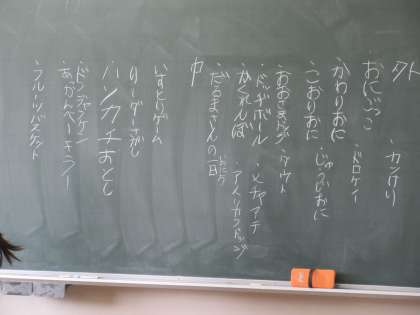 外
おにごっこ ・カンけり
かわりおに ・ドロケイ
こおりおに
・ダウト
・ドッヂボール ・メチャアテ
かくれんぼ アメリカドッジ
・だるまさんの一日
中
いすとりゲーム
リーダーさがし
ハンカチおとし
・ドンジャンケン
あかんべーキラー！
フルーツバスケット